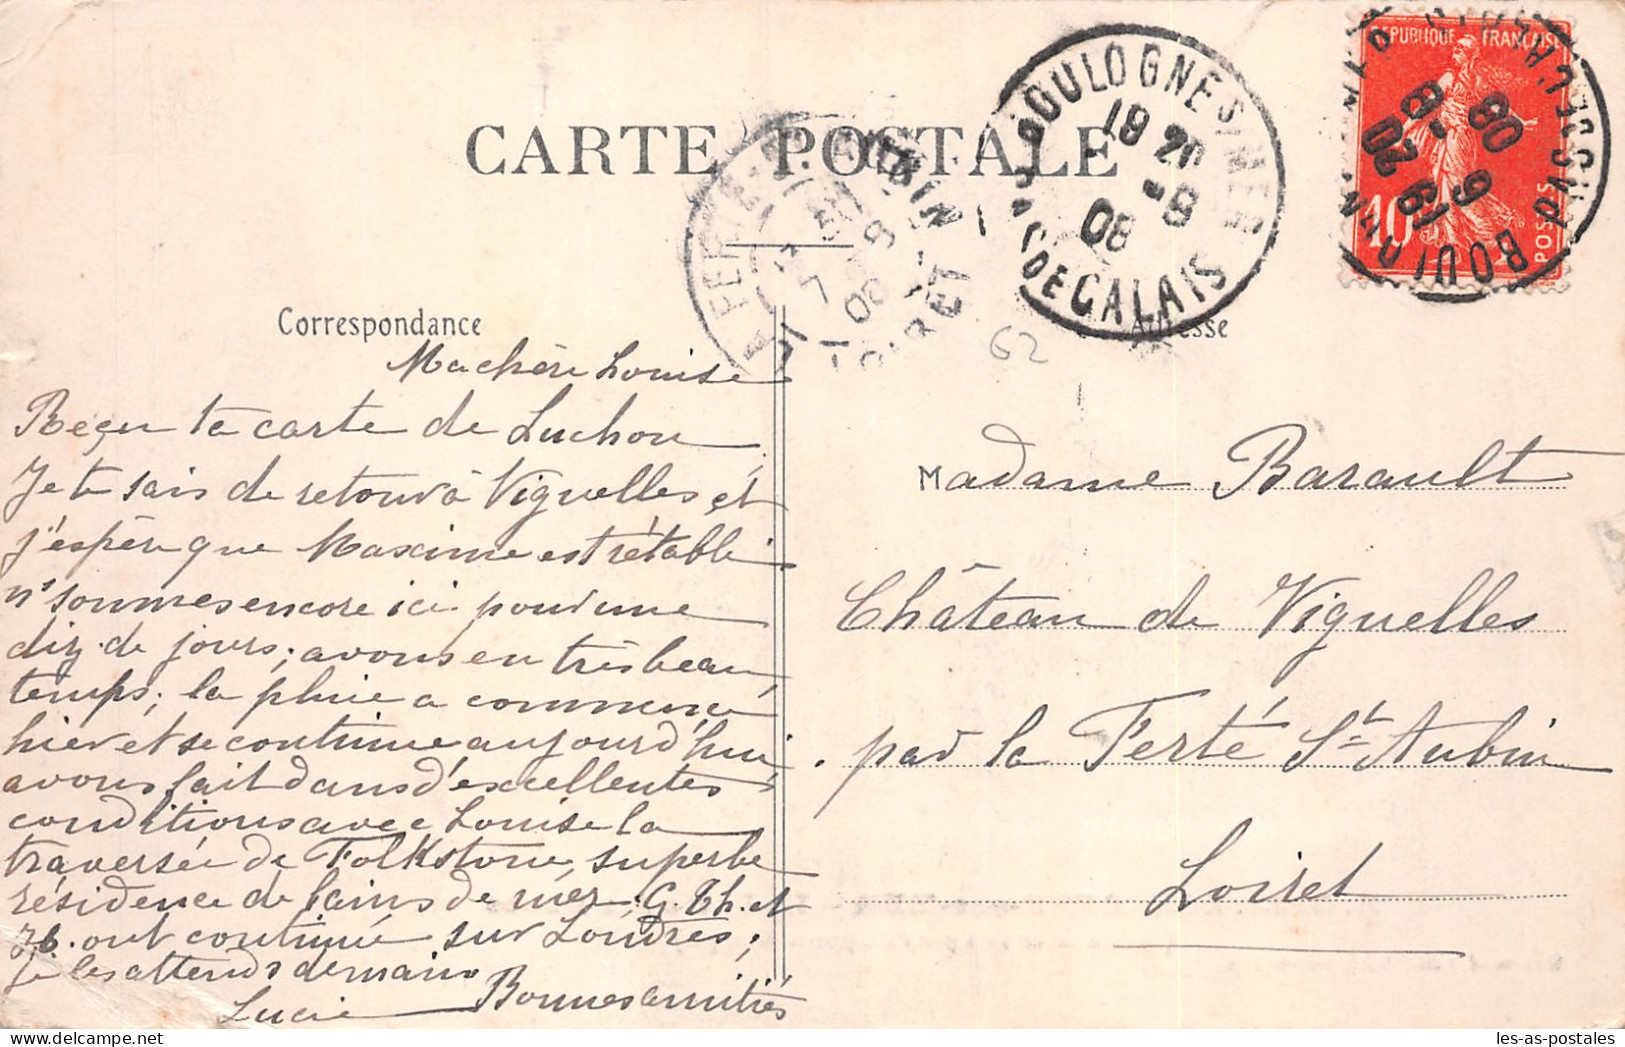 CARTE POSTALE
BOULOGNE S/MER
19 20
8 -8
08
PAS DE CALAIS
REPUBLIQUE FRANÇAISE
10
POSTES
LOIRET
62
Correspondance
Adresse
Ma chère Louise
Reçu ta carte de Luchon
Je te sais de retour à Viguelles et
j'espère que Maxime est rétabli
ns sommes encore ici pour une
diz. de jours; avons eu très beau
temps; la pluie a commencé
hier et se continue aujourd'hui
avons fait dans d'excellentes
conditions avec Louise la
traversée de Folkstone, superbe
résidence de bains de mer; G. Th. et
ont continué sur Londres;
je les attends demain
Bonnes amitiés
Lucie
Madame Barault
Château de Viguelles
par la Ferté St Aubin
Loiret
les-as-postales.com